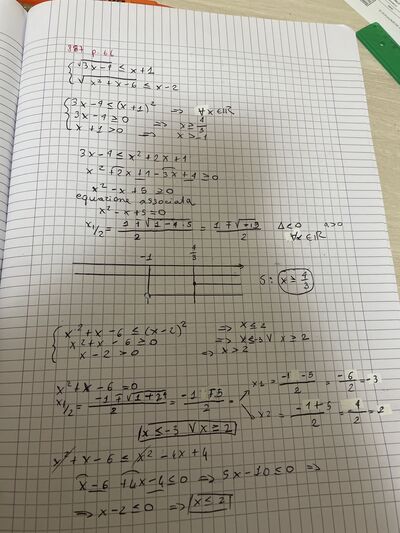 887 p. 62
{ √3x-4 ≤ x+1
√x²+x-6 ≤ x-2
{ 3x-4 ≤ (x+1)² => ∀x∈ℝ
3x-4 ≥ 0 => x ≥ 4/3
x+1 > 0 => x > -1
3x-4 ≤ x²+2x+1
x²+2x+1-3x+4 ≥ 0
x²-x+5 ≥ 0
equazione associata
x²-x+5=0
x1/2 = 1∓√1-4·5 / 2 = 1∓√-19 / 2 Δ<0 a>0
∀x∈ℝ
-1 4/3
S: x ≥ 4/3
{ x²+x-6 ≤ (x-2)² => x ≤ 2
x²+x-6 ≥ 0 => x ≤ -3 ∨ x ≥ 2
x-2 > 0 => x > 2
x²+x-6=0
x1/2 = -1∓√1+24 / 2 = -1∓5 / 2 = x1 = -1-5 / 2 = -6/2 = -3
x2 = -1+5 / 2 = 4/2 = 2
x ≤ -3 ∨ x ≥ 2
x²+x-6 ≤ x²-4x+4
x-6+4x-4 ≤ 0 => 5x-10 ≤ 0 =>
=> x-2 ≤ 0 => x ≤ 2